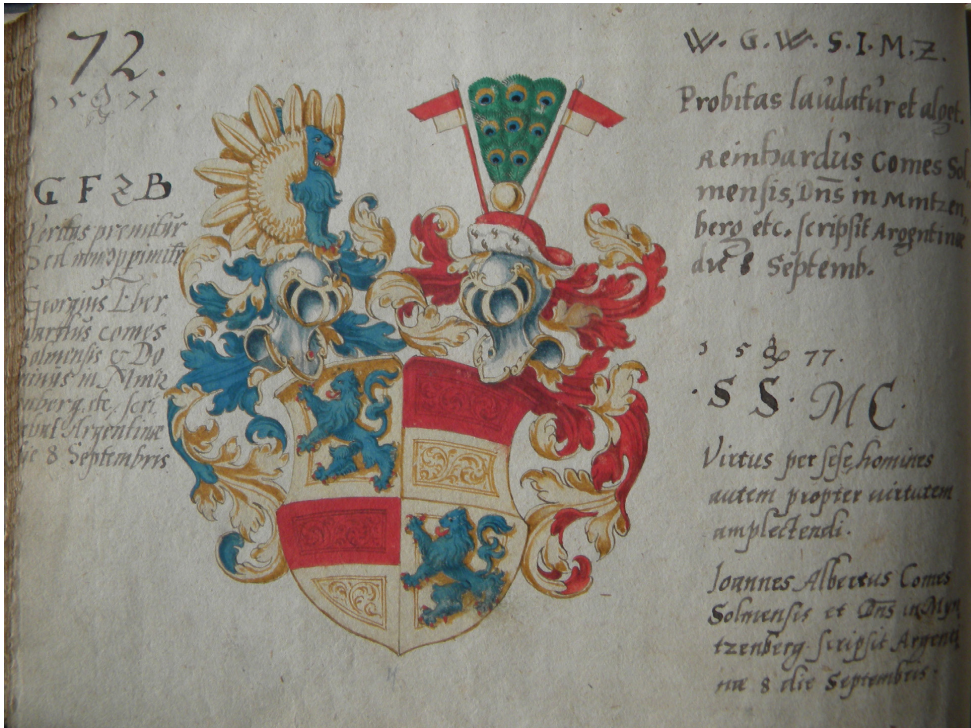 72.
15 77
G F Z B
Veritas premitur
Sed non opprimitur
Georgius Eber
hardus comes
Solmensis & Do
minus in Mintz
enberg, etc, scri
psit Argentinæ
die 8 Septembris
W. G. W. S. I. M. Z.
Probitas laudatur et alget.
Reinhardus Comes Sol
mensis, Dns in Mintzen
berg etc. scripsit Argentinæ
die 8 Septemb.
15 77.
. S S. M C.
Virtus per sese, homines
autem propter virtutem
amplectendi.
Joannes Albertus Comes
Solmensis et Dns in Myn
tzenberg scripsit Argenti
næ 8 die Septembris.